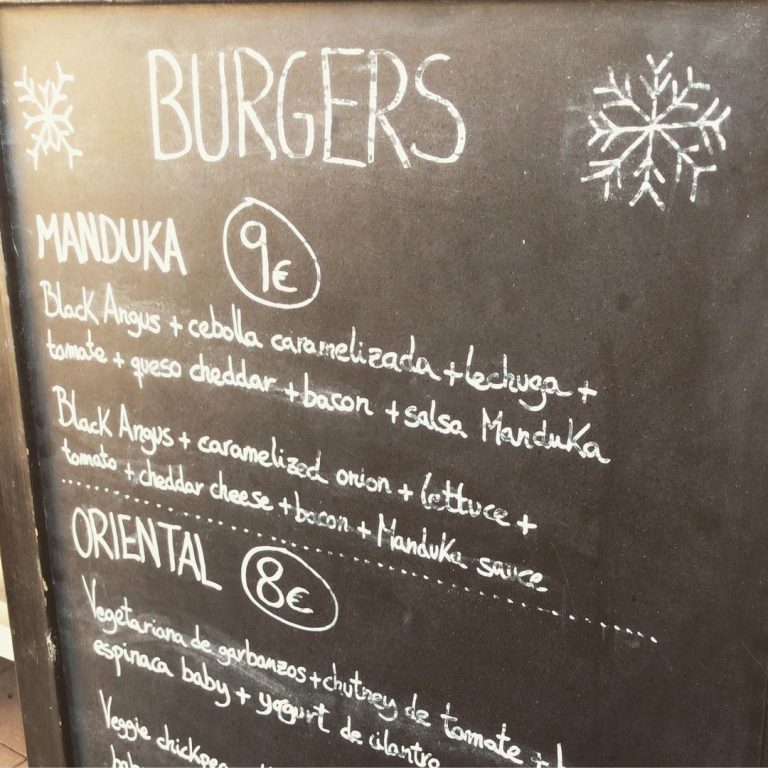 BURGERS
MANDUKA 9€
Black Angus + cebolla caramelizada + lechuga +
tomate + queso cheddar + bacon + salsa Manduka
Black Angus + caramelized onion + lettuce +
tomato + cheddar cheese + bacon + Manduka sauce
ORIENTAL 8€
Vegetariana de garbanzos + chutney de tomate +
espinaca baby + yogurt de cilantro
Veggie